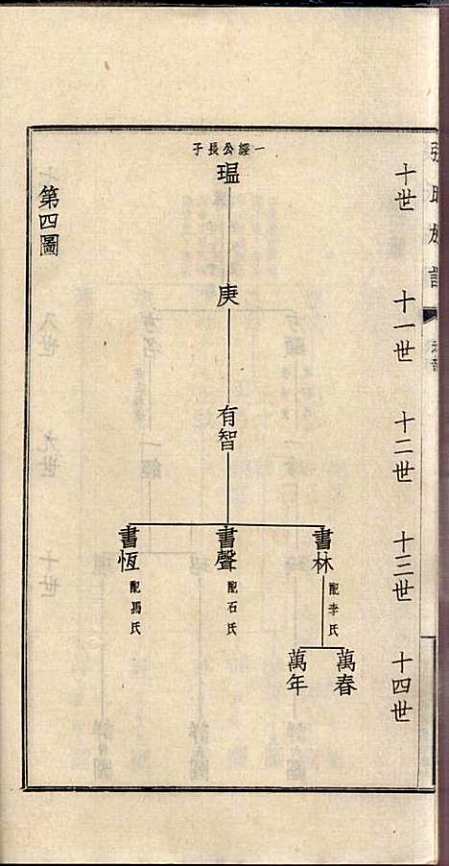 張氏族譜
十世
十一世
十二世
十三世
十四世
一經公長子
瑥
庚
有智
書林
配李氏
書聲
配石氏
書恆
配馬氏
萬春
萬年
第四圖